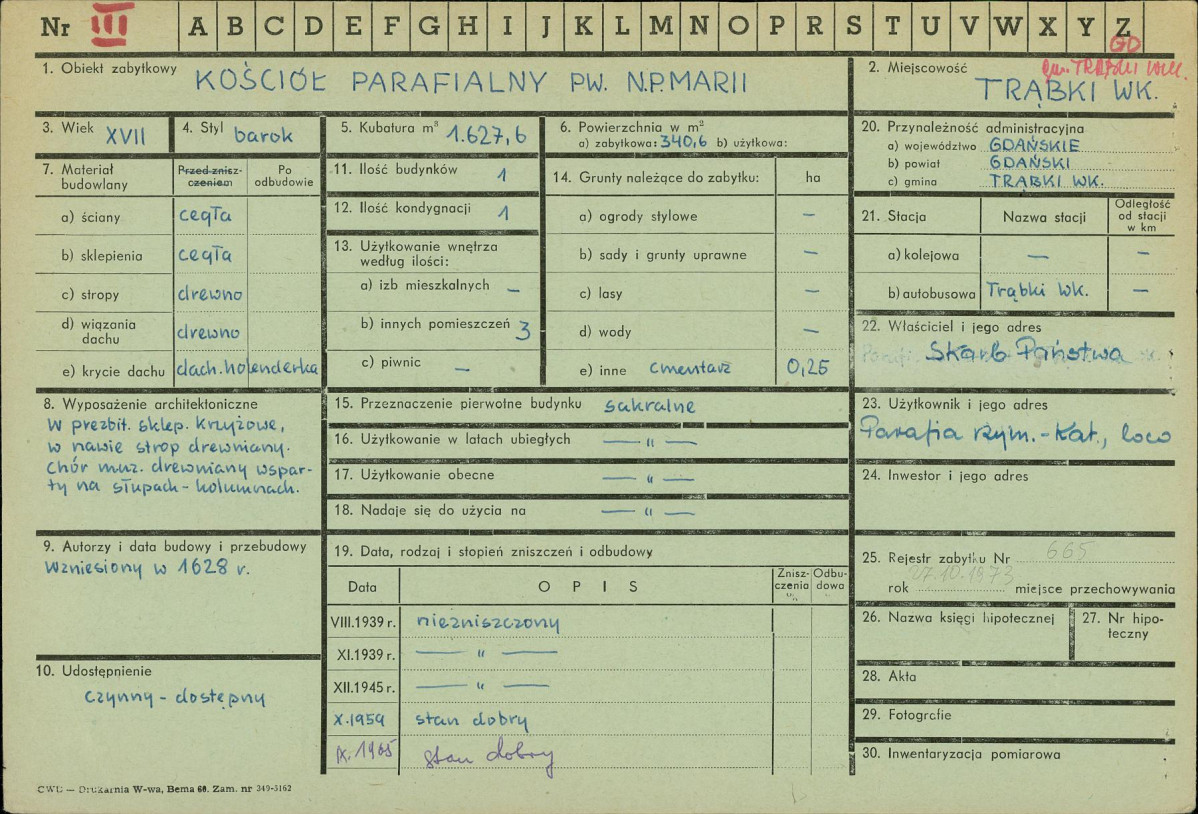 Nr III A B C D E F G H I J K L M N O P R S T U V W X Y Z
GD
gm. TRĄBKI WLK.
1. Obiekt zabytkowy KOŚCIÓŁ PARAFIALNY PW. N.P.MARII
2. Miejscowość
TRĄBKI WK.
3. Wiek XVII
4. Styl barok
5. Kubatura m³ 1.627,6
6. Powierzchnia w m²
a) zabytkowa: 340,6 b) użytkowa:
7. Materiał budowlany
Przed zniszczeniem
Po odbudowie
a) ściany cegła
b) sklepienia cegła
c) stropy drewno
d) wiązania dachu drewno
e) krycie dachu dach. holenderka
8. Wyposażenie architektoniczne
W prezbit. sklep. krzyżowe,
w nawie strop drewniany.
Chór muz. drewniany wspar-
ty na słupach-kolumnach.
9. Autorzy i data budowy i przebudowy
Wzniesiony w 1628 r.
10. Udostępnienie
czynny - dostępny
11. Ilość budynków 1
12. Ilość kondygnacji 1
13. Użytkowanie wnętrza
według ilości:
a) izb mieszkalnych —
b) innych pomieszczeń 3
c) piwnic —
14. Grunty należące do zabytku: ha
a) ogrody stylowe —
b) sady i grunty uprawne —
c) lasy —
d) wody —
e) inne cmentarz 0,25
15. Przeznaczenie pierwotne budynku sakralne
16. Użytkowanie w latach ubiegłych — „ —
17. Użytkowanie obecne — „ —
18. Nadaje się do użycia na — „ —
19. Data, rodzaj i stopień zniszczeń i odbudowy
Data
O P I S
Znisz-
czenia
%
Odbu-
dowa
VIII.1939 r. niezniszczony
XI.1939 r. — „ —
XII.1945 r. — „ —
X.1959 stan dobry
IX.1965 stan dobry
20. Przynależność administracyjna
a) województwo GDAŃSKIE
b) powiat GDAŃSKI
c) gmina TRĄBKI WK.
21. Stacja
Nazwa stacji
Odległość
od stacji
w km
a) kolejowa — —
b) autobusowa Trąbki Wk. —
22. Właściciel i jego adres
Skarb Państwa
23. Użytkownik i jego adres
Parafia Rzym.-Kat., loco
24. Inwestor i jego adres
25. Rejestr zabytku Nr 665
rok 27.10.1973 miejsce przechowywania
26. Nazwa księgi hipotecznej
27. Nr hipo-
teczny
28. Akta
29. Fotografie
30. Inwentaryzacja pomiarowa
CWD — Drukarnia W-wa, Bema 60. Zam. nr 349-5162